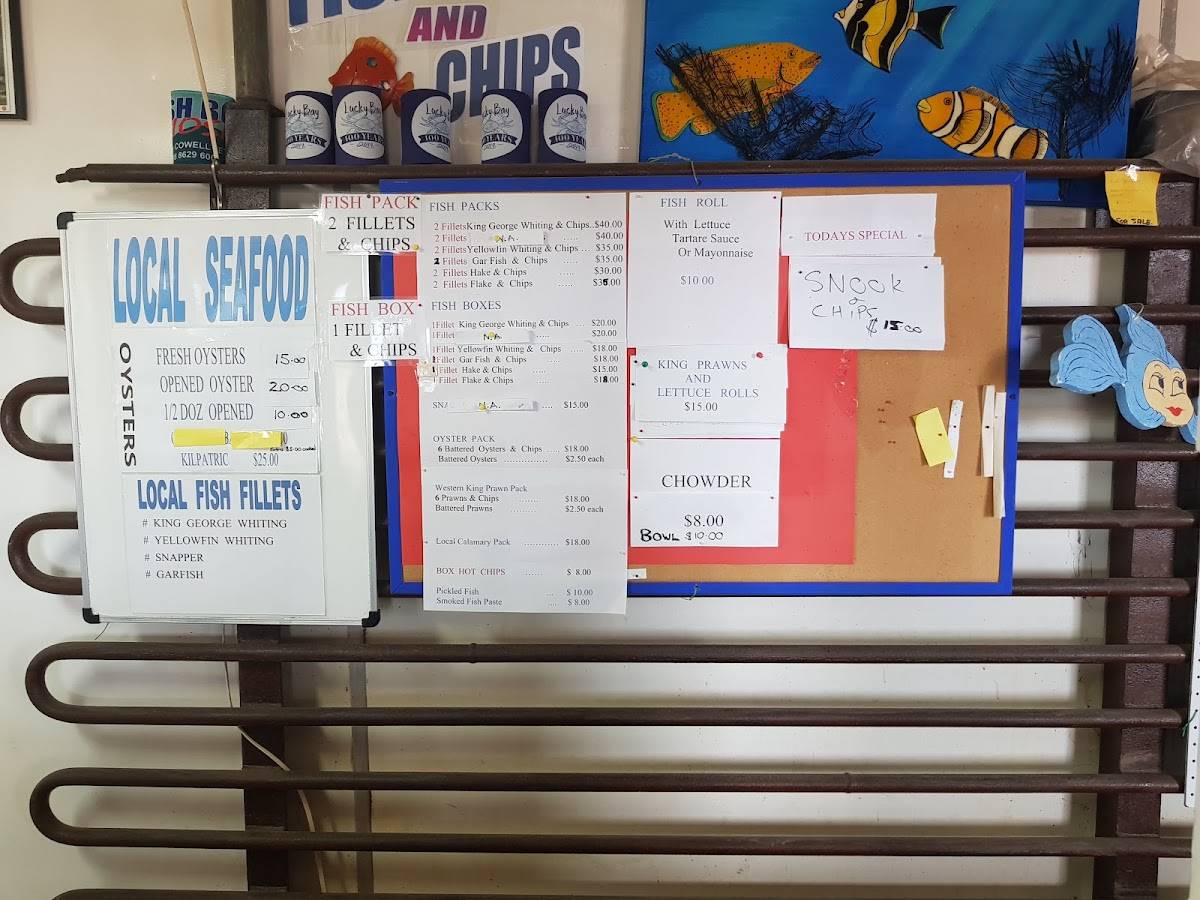 AND
CHIPS
COWELL
8629 60
Lucky Bay
Lucky Bay
100 YEARS
Lucky Bay
100 YEARS
Lucky Bay
YEARS
Lucky Bay
100 YEARS
FOR SALE
LOCAL SEAFOOD
OYSTERS
FRESH OYSTERS 15.00
OPENED OYSTER 20.00
1/2 DOZ OPENED 10.00
KILPATRIC $25.00
LOCAL FISH FILLETS
# KING GEORGE WHITING
# YELLOWFIN WHITING
# SNAPPER
# GARFISH
FISH PACK
2 FILLETS
& CHIPS
FISH BOX
1 FILLET
& CHIPS
FISH PACKS
2 Fillets King George Whiting & Chips.. $40.00
2 Fillets N.A. ..... $40.00
2 Fillets Yellowfin Whiting & Chips ... $35.00
2 Fillets Gar Fish & Chips ..... $35.00
2 Fillets Hake & Chips ..... $30.00
2 Fillets Flake & Chips ..... $35.00
FISH BOXES
1Fillet King George Whiting & Chips .... $20.00
1Fillet N.A. ..... $20.00
1Fillet Yellowfin Whiting & Chips ..... $18.00
1Fillet Gar Fish & Chips .... $18.00
1Fillet Hake & Chips .... $15.00
1Fillet Flake & Chips .... $18.00
SNA N.A. .... $15.00
OYSTER PACK
6 Battered Oysters & Chips ..... $18.00
Battered Oysters ............... $2.50 each
Western King Prawn Pack
6 Prawns & Chips ....... $18.00
Battered Prawns ....... $2.50 each
Local Calamary Pack ..... $18.00
BOX HOT CHIPS ...... $ 8.00
Pickled Fish ... $ 10.00
Smoked Fish Paste .... $ 8.00
FISH ROLL
With Lettuce
Tartare Sauce
Or Mayonnaise
$10 00
KING PRAWNS
AND
LETTUCE ROLLS
$15.00
CHOWDER
$8.00
BOWL $10.00
TODAYS SPECIAL
SNOOK
&
CHIPS
$15.00